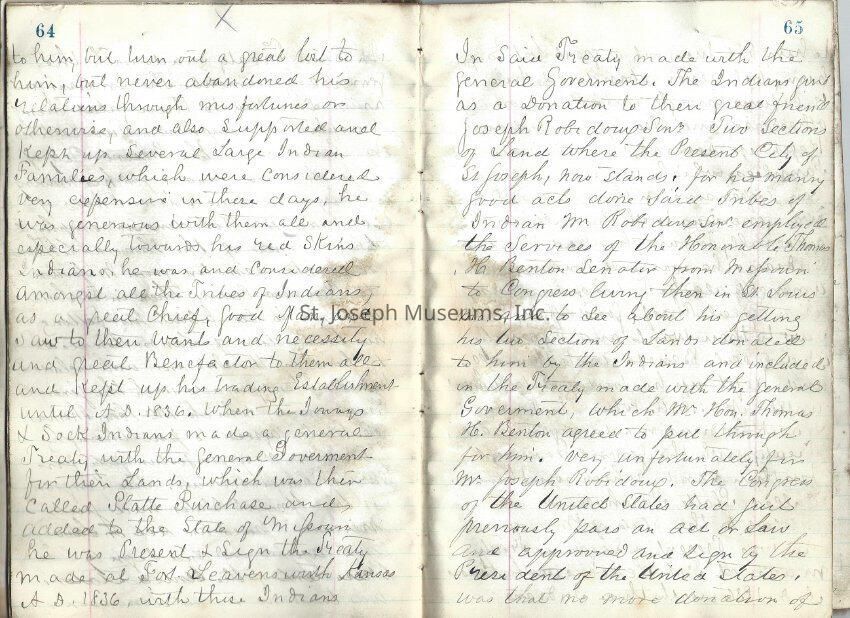 64
to him but turn out a great lost to
him, but never abandoned his
relations through misfortunes or
otherwise, and also Supported and
Kept up Several Large Indian
Families, which were considered
very expensive in these days, he
was generious with them all and
especially towards his red Skins
Indians, he was and Considered
amongst all the Tribes of Indians,
as a great Chief, good Man,
Saw to their wants and necessity
and great Benefactor to them all
and Kept up his trading Establishment
until A D. 1836. When the Ioways
& Sock Indians made a general
Treaty with the General Goverment
for their Lands, which was then
Called Platte Purchase and
added to the State of Missouri
he was Present & Sign the Treaty
made at Fort Leavensworth Kansas
A D. 1836, with these Indians
65
In Said Treaty made with the
general Goverment. The Indians give
as a Donation to their great friend
Joseph Robidoux Senr Two Sections
of Land where the Present City of
St Joseph, now stands. for his manny
good acts done Said Tribes of
Indian Mr Robidoux Senr employed
the Services of the Honorable Thomas
H. Benton Senator from Missouri
to Congress living then in St Louis
to See about his getting
his two Section of Lands donated
to him by the Indians and included
in the Treaty made with the general
Goverment, which Mr Hon. Thomas
H. Benton agreed to put through
for him. Very unfortunately for
Mr Joseph Robidoux. The Congress
of the United States had just
previously pass an act or Law
and approoved and Sign by the
President of the United States.
was that no more donation of
St. Joseph Museums, Inc.